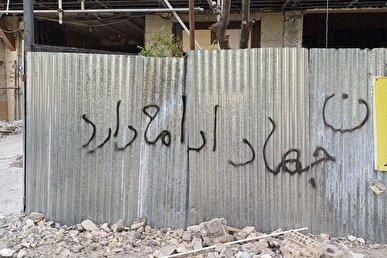 ن
جهاد ادامه دارد